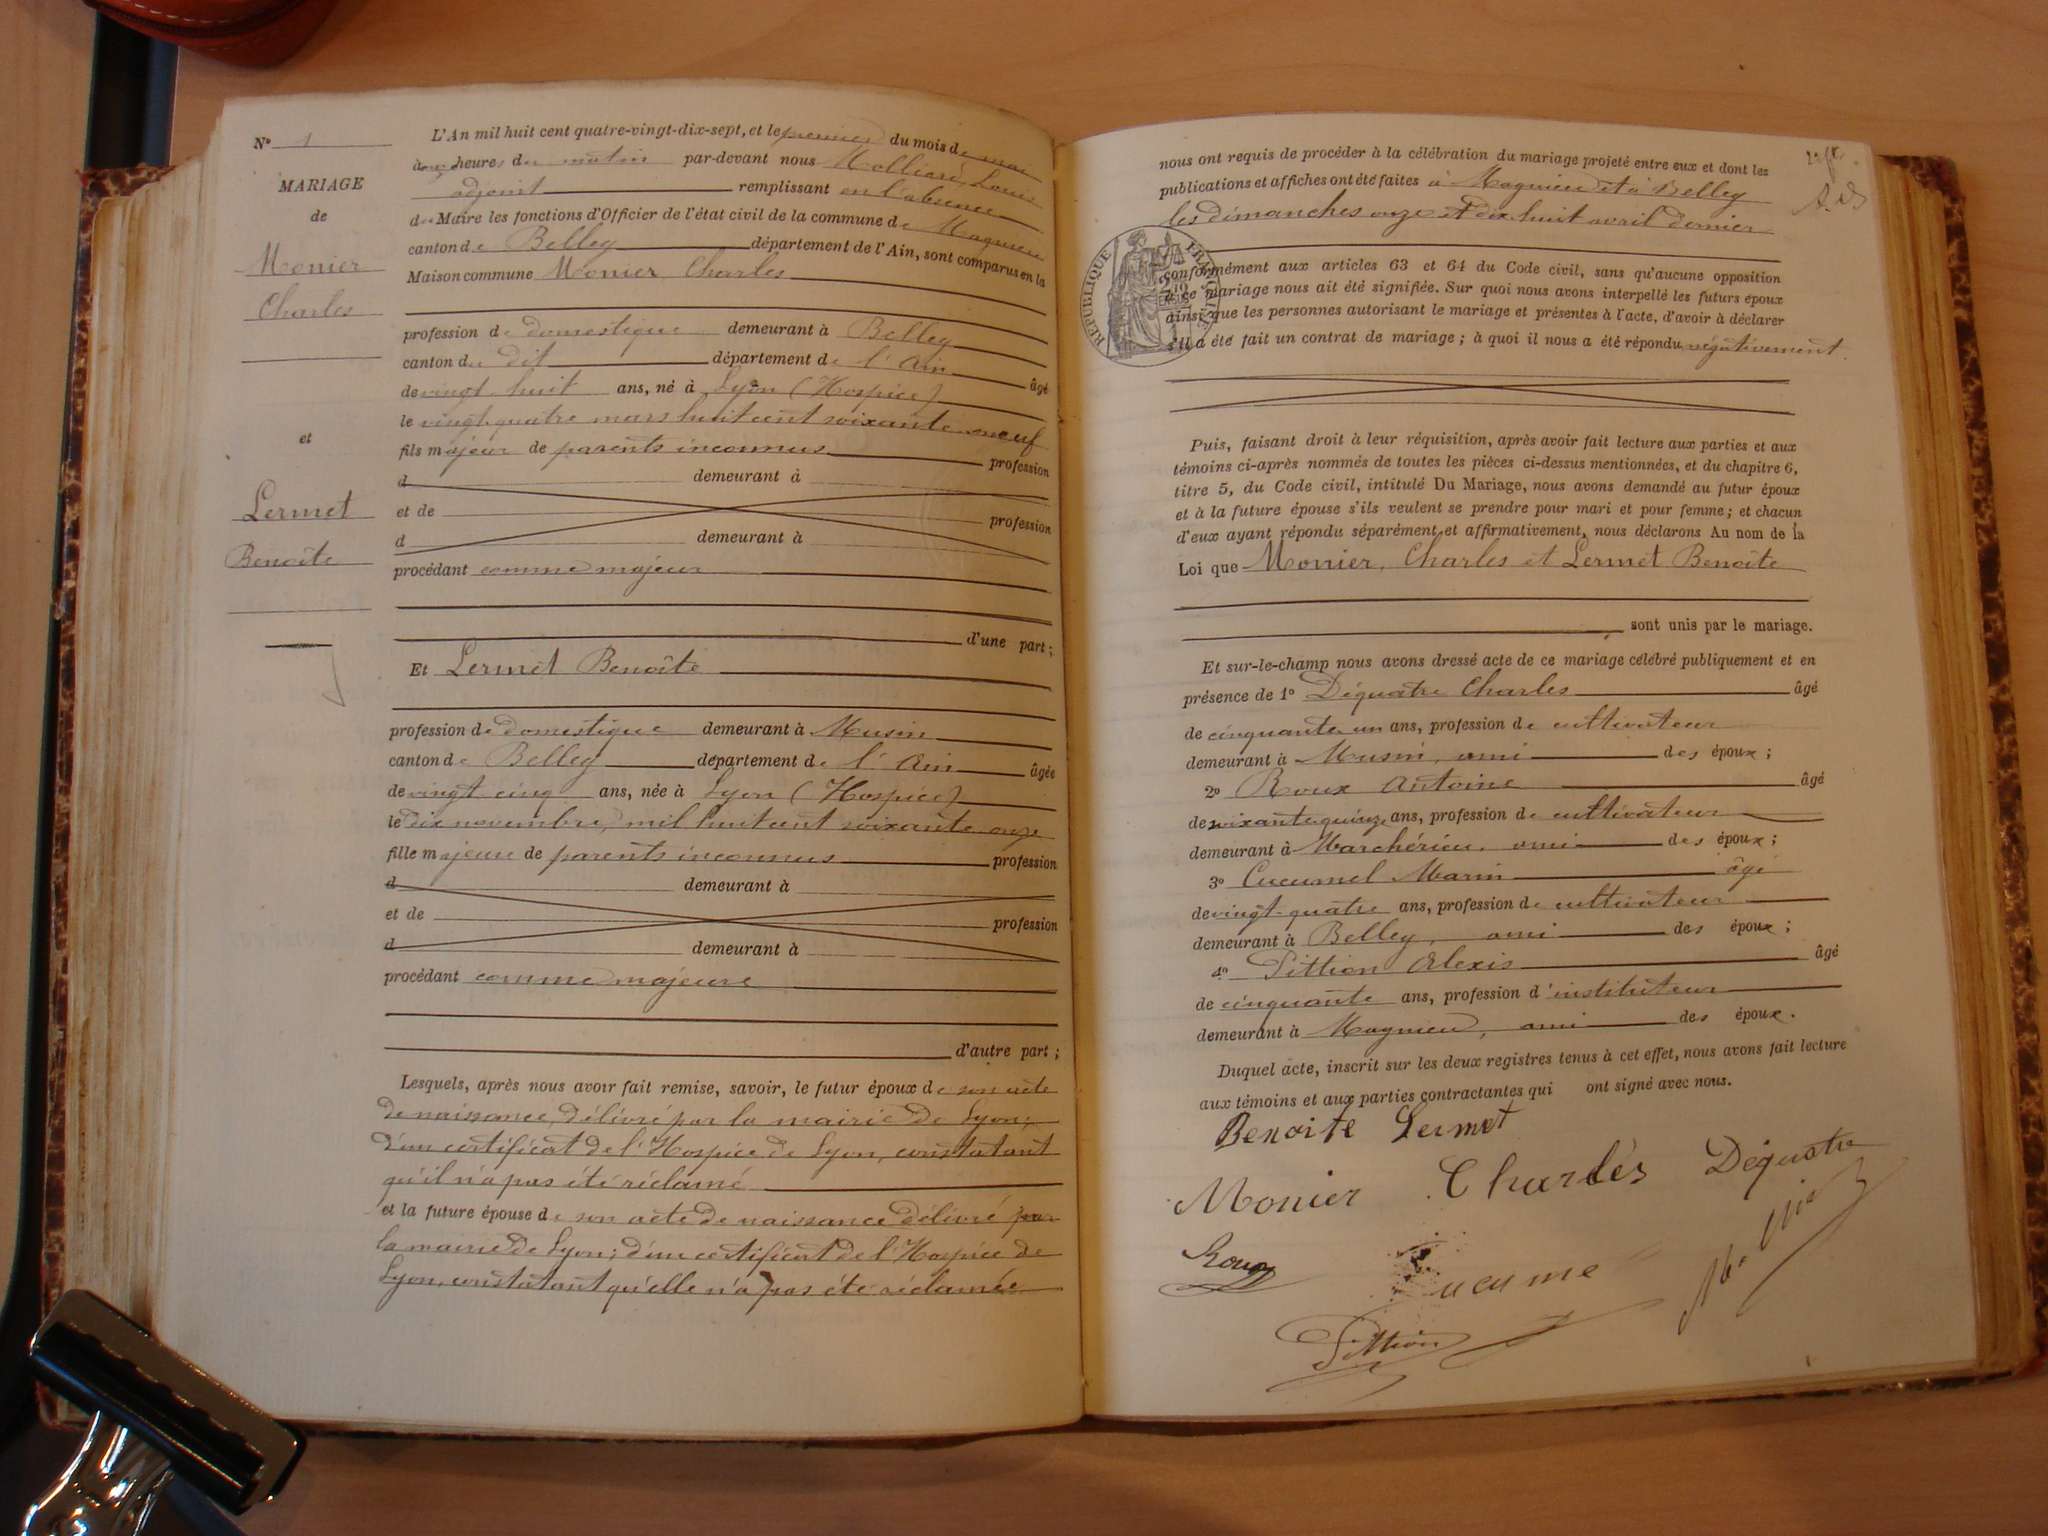 Nº 1
MARIAGE
de
Monier
Charles
et
Lermet
Benoîte
L'An mil huit cent quatre-vingt-dix-sept, et le premier du mois de mai
à onze heures du matin par-devant nous Molliard, Louis
adjoint remplissant en l'absence
du Maire les fonctions d'Officier de l'état civil de la commune de Magnieu
canton de Belley département de l'Ain, sont comparus en la
Maison commune Monier Charles
profession de domestique demeurant à Belley
canton du dit département de l'Ain âgé
de vingt huit ans, né à Lyon (Hospice)
le vingt-quatre mars huit cent soixante neuf
fils majeur de parents inconnus profession
d demeurant à
et de profession
d demeurant à
procédant comme majeur
d'une part ;
Et Lermet Benoîte
profession de domestique demeurant à Musin
canton de Belley département de l'Ain âgée
de vingt cinq ans, née à Lyon (Hospice)
le dix novembre, mil huit cent soixante onze
fille majeure de parents inconnus profession
d demeurant à
et de profession
d demeurant à
procédant comme majeure
d'autre part ;
Lesquels, après nous avoir fait remise, savoir, le futur époux de son acte
de naissance, délivré par la mairie de Lyon;
d'un certificat de l'Hospice de Lyon, constatant
qu'il n'a pas été réclamé
et la future épouse de son acte de naissance délivré par
la mairie de Lyon; d'un certificat de l'Hospice de
Lyon, constatant qu'elle n'a pas été réclamée
nous ont requis de procéder à la célébration du mariage projeté entre eux et dont les
publications et affiches ont été faites à Magnieu et à Belley
les dimanches onze et dix huit avril dernier
RÉPUBLIQUE FRANÇAISE
conformément aux articles 63 et 64 du Code civil, sans qu'aucune opposition
à ce mariage nous ait été signifiée. Sur quoi nous avons interpellé les futurs époux
ainsi que les personnes autorisant le mariage et présentes à l'acte, d'avoir à déclarer
s'il a été fait un contrat de mariage ; à quoi il nous a été répondu négativement.
Puis, faisant droit à leur réquisition, après avoir fait lecture aux parties et aux
témoins ci-après nommés de toutes les pièces ci-dessus mentionnées, et du chapitre 6,
titre 5, du Code civil, intitulé Du Mariage, nous avons demandé au futur époux
et à la future épouse s'ils veulent se prendre pour mari et pour femme ; et chacun
d'eux ayant répondu séparément et affirmativement, nous déclarons Au nom de la
Loi que Monier, Charles et Lermet Benoîte
sont unis par le mariage.
Et sur-le-champ nous avons dressé acte de ce mariage célébré publiquement et en
présence de 1º Déquatre Charles âgé
de cinquante un ans, profession de cultivateur
demeurant à Musin, ami des époux ;
2º Roux Antoine âgé
de soixante quinze ans, profession de cultivateur
demeurant à Marchérieu, ami des époux ;
3º Cucumel Marin âgé
de vingt-quatre ans, profession de cultivateur
demeurant à Belley, ami des époux ;
4º Pittion Alexis âgé
de cinquante ans, profession d'instituteur
demeurant à Magnieu, ami des époux.
Duquel acte, inscrit sur les deux registres tenus à cet effet, nous avons fait lecture
aux témoins et aux parties contractantes qui ont signé avec nous.
Benoite Lermet
Monier Charles Déquatre
Roux
Cucumel
Pittion